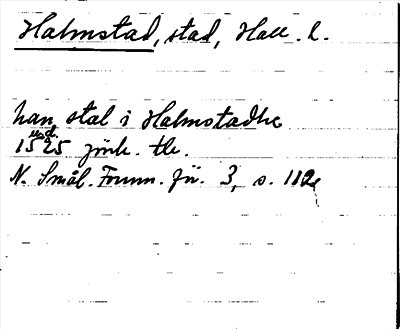 Halmstad, stad, Hall. l.
han stal i Halmstadhe
1525 jönk. tb.
N. Smål. Fornm. för. 3, s. 112